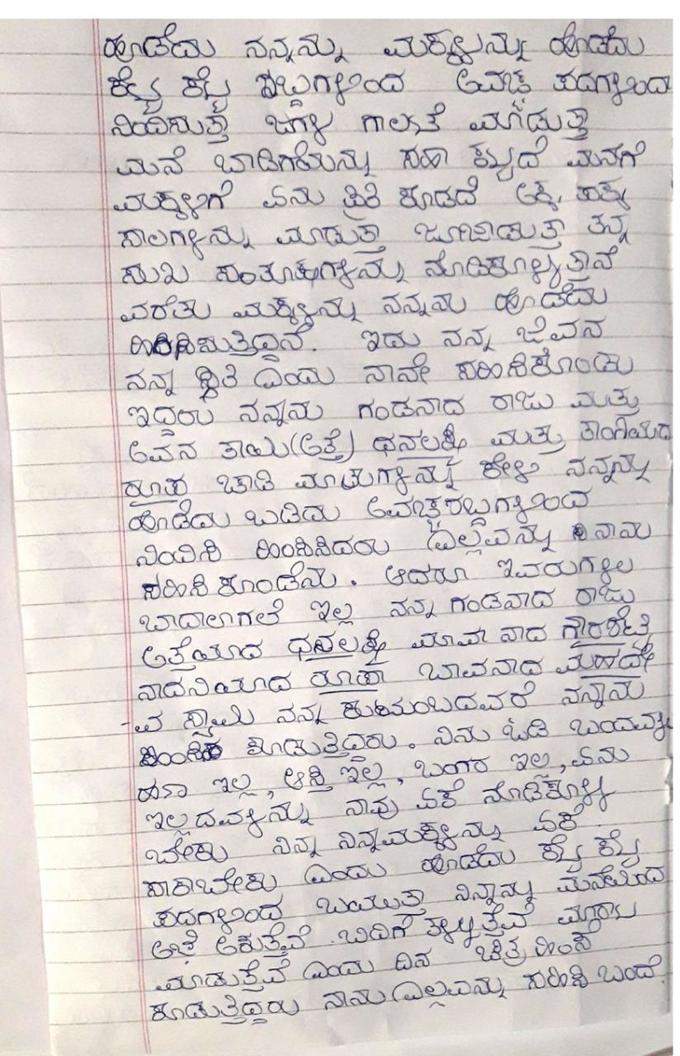 ಹೊಡೆದು ನನ್ನನ್ನು ಮಕ್ಕಳನ್ನು ಹೊಡೆದು
ಶಬ್ದಗಳಿಂದ ಅವಾಚ್ಯ ಪದಗಳಿಂದ
ನಿಂದಿಸುತ್ತಾ ಜಗಳ ಗಾಲಾತೆ ಮಾಡುತ್ತಾ
ಮನೆ ಬಾಡಿಗೆಯನ್ನು ಸಹಾ ಕಟ್ಟದೆ ಮನೆಗೆ
ಮಕ್ಕಳಿಗೆ ಏನು ಕೂಡದೆ
ಸಾಲಗಳನ್ನು ಮಾಡುತ್ತಾ ಜೂಜಾಡುತ್ತಾ ತನ್ನ
ಸುಖ ಸಂತೂಷಗಳನ್ನು ನೋಡಿಕೊಳ್ಳುತ್ತಾನೆ
ವರೆತು ಮಕ್ಕಳನ್ನು ನನ್ನನು ಹೊಡೆದು
ಇದು ನನ್ನ ಜೀವನ
ನನ್ನ ಸ್ಥಿತಿ ಎಂದು ನಾನೇ ಸಹಿಸಿಕೊಂಡು
ಇದ್ದರು ನನ್ನನು ಗಂಡನಾದ ರಾಜು ಮತ್ತು
ಅವನ ತಾಯಿ(ಅತ್ತೆ) ಧನಲಕ್ಷ್ಮಿ ಮತ್ತು ತಂಗಿಯಾದ
ರೂಪಾ ಚಾಡಿ ಮಾತುಗಳನ್ನು ಕೇಳಿ ನನ್ನನ್ನು
ಹೊಡೆದು ಬಡಿದು ಅವಾಚ್ಯಶಬ್ದಗಳಿಂದ
ನಿಂದಿಸಿ ಹಿಂಸಿಸಿದರು ಎಲ್ಲವನ್ನು ನಾನು
ಸಹಿಸಿಕೊಂಡೆನು. ಆದರೂ ಇವರುಗಳು
ಬಾದಾಲಾಗಲೆ ಇಲ್ಲ ನನ್ನ ಗಂಡನಾದ ರಾಜು
ಅತ್ತೆಯಾದ ಧನಲಕ್ಷ್ಮಿ ಮಾವಾ ನಾದ ಗೌರಿಶೆಟ್ಟಿ
ನಾದನಿಯಾದ ರೂಪಾ ಬಾವನಾದ ಮಹಾದೇ
-ವ ಸ್ವಾಮಿ ನನ್ನ ಕುಟುಂಬದವರೆ ನನ್ನನು
ಹಿಂಸೆ ಕೊಡುತ್ತಿದ್ದರು. ನಿನು ಓಡಿ ಬಂದವಳು
ಹಣ ಇಲ್ಲ, ಆಸ್ತಿ ಇಲ್ಲ, ಬಂಗಾರ ಇಲ್ಲ, ಏನು
ಇಲ್ಲದವಳನ್ನು ನಾವು ಏಕೆ ನೋಡಿಕೊಳ್ಳ
ಬೇಕು ನಿನ್ನ ನಿನ್ನಮಕ್ಕಳನ್ನು ಏಕೆ
ಸಾಕಬೇಕು ಎಂದು ಹೊಡೆದು
ಪದಗಳಿಂದ ಬಯುತ್ತಾ ನಿನ್ನನ್ನು ಮನೆಯಿಂದ
ಆಚೆ ಆಕುತ್ತೇವೆ ಬಿದಿಗೆ ತಳ್ಳುತ್ತೇವೆ ಮಾರಾಟ
ಮಾಡುತ್ತೇವೆ ಎಂದು ದಿನ ಚಿತ್ರ ಹಿಂಸೆ
ಕೊಡುತ್ತಿದ್ದರು ನಾನು ಎಲ್ಲವನ್ನು ಸಹಿಸಿ ಬಂದೆ.